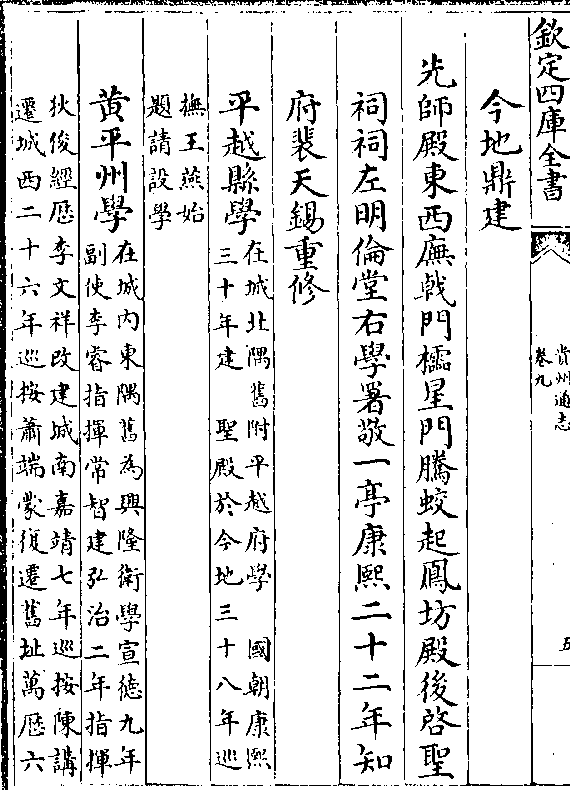 欽定四庫全書
貴州通志
卷九
五
今地鼎建
先師殿東西廡戟門櫺星門騰蛟起鳳坊殿後啓聖
祠祠左明倫堂右學署敬一亭康熙二十二年知
府裴天錫重修
平越縣學
在城北隅舊附平越府學 國朝康熙
三十年建 聖殿於今地三十八年巡
撫王燕始
題請設學
黄平州學
在城内東隅舊為興隆衛學宣德九年
副使李睿指揮常智建弘治二年指揮
狄俊經歷李文祥改建城南嘉靖七年巡按陳講
遷城西二十六年巡按蕭端蒙復遷舊址萬歷六